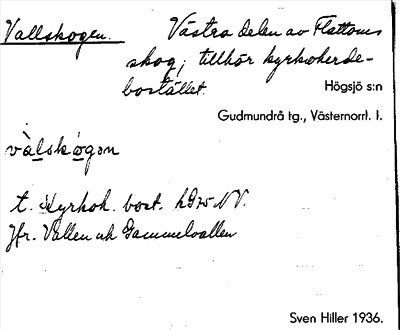 Vallskogen. Västra delen av Flattoms
skog; tillhör kyrkoherde-
bostället.
Högsjö s:n
Gudmundrå tg., Västernorrl. l.
vàlskògən
t. Kyrkoh. bost. NV.
Jfr. Vallen och Gammelvallen
Sven Hiller 1936.